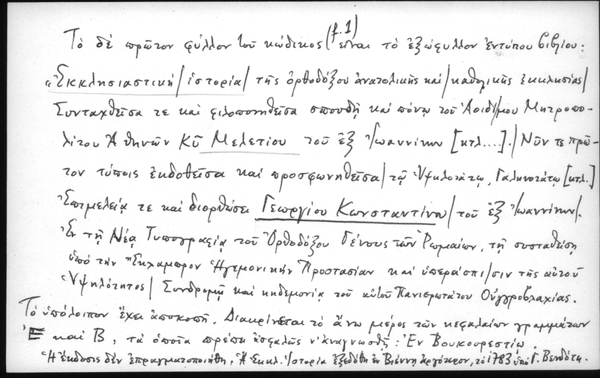 Τὸ δὲ πρῶτον φύλλον τοῦ κώδικος (f.1) εἶναι τὸ ἐξώφυλλον ἐντύπου βιβλίου:
«Ἐκκλησιαστικὴ / ἱστορία / τῆς ὀρθοδόξου ἀνατολικῆς καὶ / καθολικῆς ἐκκλησίας /
Συνταχθεῖσα τε καὶ φιλοπονηθεῖσα σπουδῇ καὶ πόνῳ τοῦ Ἀοιδίμου Μητροπο-
λίτου Ἀθηνῶν Κῦ Μελετίου τοῦ ἐξ Ἰωαννίνων [κτλ....]. / Νῦν τε πρῶ-
τον τύποις ἐκδοθεῖσα καὶ προσφωνηθεῖσα / τῷ Ὑψηλοτάτῳ, Γαληνοτάτῳ [κτλ.]
Ἐπιμελείᾳ τε καὶ διορθώσει Γεωργίου Κωνσταντίνου / τοῦ ἐξ Ἰωαννίνων /.
Ἐν τῇ Νέᾳ Τυπογραφίᾳ τοῦ Ὀρθοδόξου Γένους τῶν Ῥωμαίων, τῇ συσταθείσῃ
ὑπὸ τὴν Ἡγεμονικὴν Προστασίαν καὶ ὑπεράσπισιν τῆς αὐτοῦ
Ὑψηλότητος / Συνδρομῇ καὶ κηδεμονίᾳ τοῦ αὐτοῦ Πανιερωτάτου Οὑγγροβλαχίας.
Τὸ ὑπόλοιπον ἔχει ἀποκοπῆ. Διακρίνεται τὸ ἄνω μέρος τῶν κεφαλαίων γραμμάτων
Ε καὶ Β, τὰ ὁποῖα πρέπει ἀσφαλῶς ν' ἀναγνωσθῇ: Ἐν Βουκουρεστίῳ.
Ἡ ἔκδοσις δὲν ἐπραγματοποιήθη, Ἡ Ἐκκλ. Ἱστορία ἐξεδόθη ἐν Βιέννῃ ἀργότερον, τὸ 1783 ὑπὸ Γ. Βενδότη.